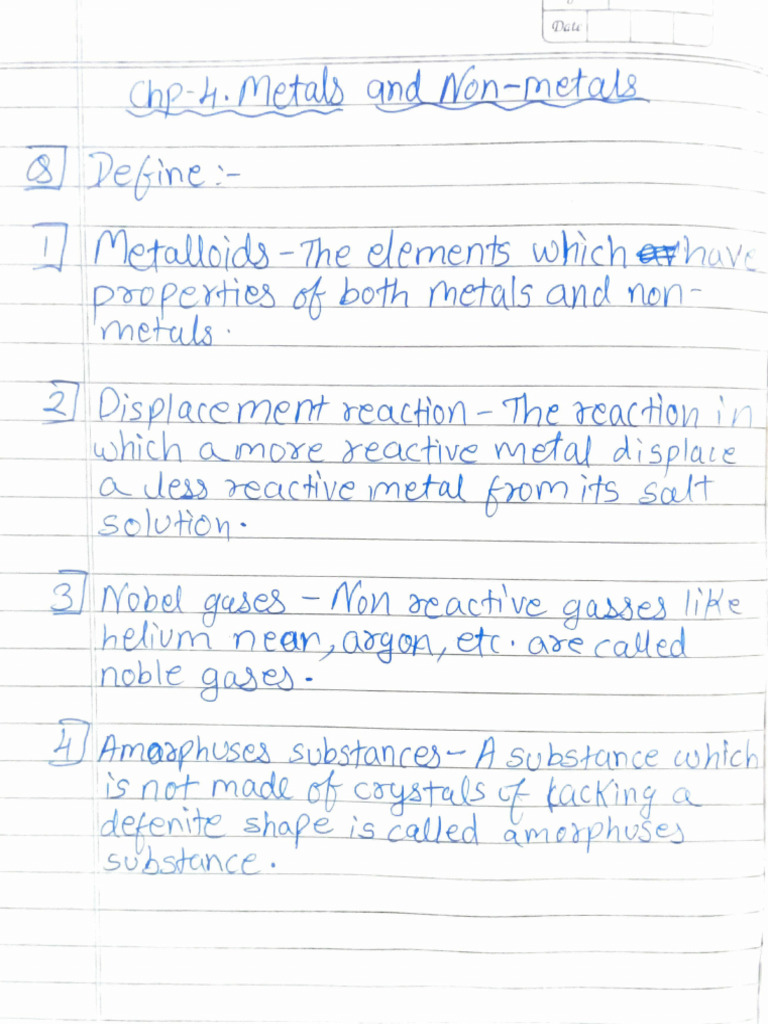 Date
Chp-4. Metals and Non-metals
Q Define :-
1 Metalloids - The elements which have
properties of both metals and non-
metals.
2 Displacement reaction - The reaction in
which a more reactive metal displace
a less reactive metal from its salt
solution.
3 Nobel gases - Non reactive gasses like
helium nean, argon, etc. are called
noble gases.
4 Amorphuses substances - A substance which
is not made of crystals of lacking a
defenite shape is called amorphuses
substance.